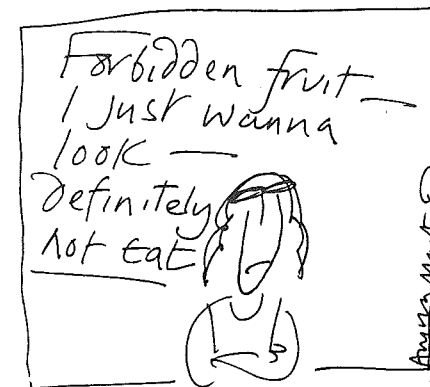 Forbidden fruit —
I Just wanna
look —
definitely
not Eat